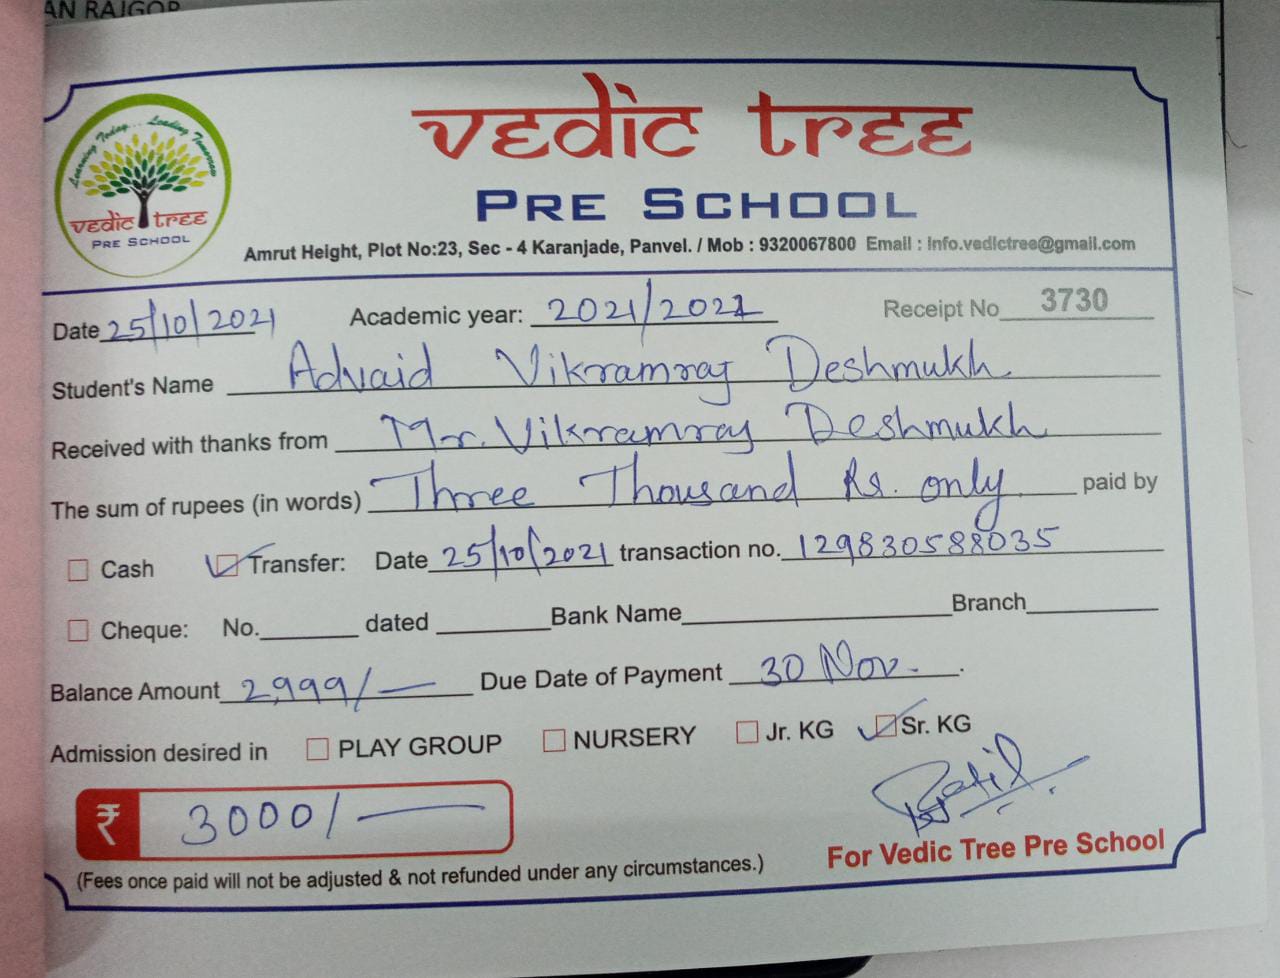 AN RAJGOR
Learning Today... Leading Tomorrow
vedic tree
PRE SCHOOL
vedic tree
PRE SCHOOL
Amrut Height, Plot No:23, Sec - 4 Karanjade, Panvel. / Mob : 9320067800 Email : info.vedictree@gmail.com
Date 25/10/2021 Academic year: 2021/2022 Receipt No 3730
Student's Name Advaid Vikramraj Deshmukh
Received with thanks from Mr. Vikramraj Deshmukh
The sum of rupees (in words) Three Thousand Rs. only paid by
Cash Transfer: Date 25/10/2021 transaction no. 129830588035
Cheque: No. dated Bank Name Branch
Balance Amount 2,999/- Due Date of Payment 30 Nov.
Admission desired in PLAY GROUP NURSERY Jr. KG Sr. KG
₹ 3000/-
Patil
For Vedic Tree Pre School
(Fees once paid will not be adjusted & not refunded under any circumstances.)